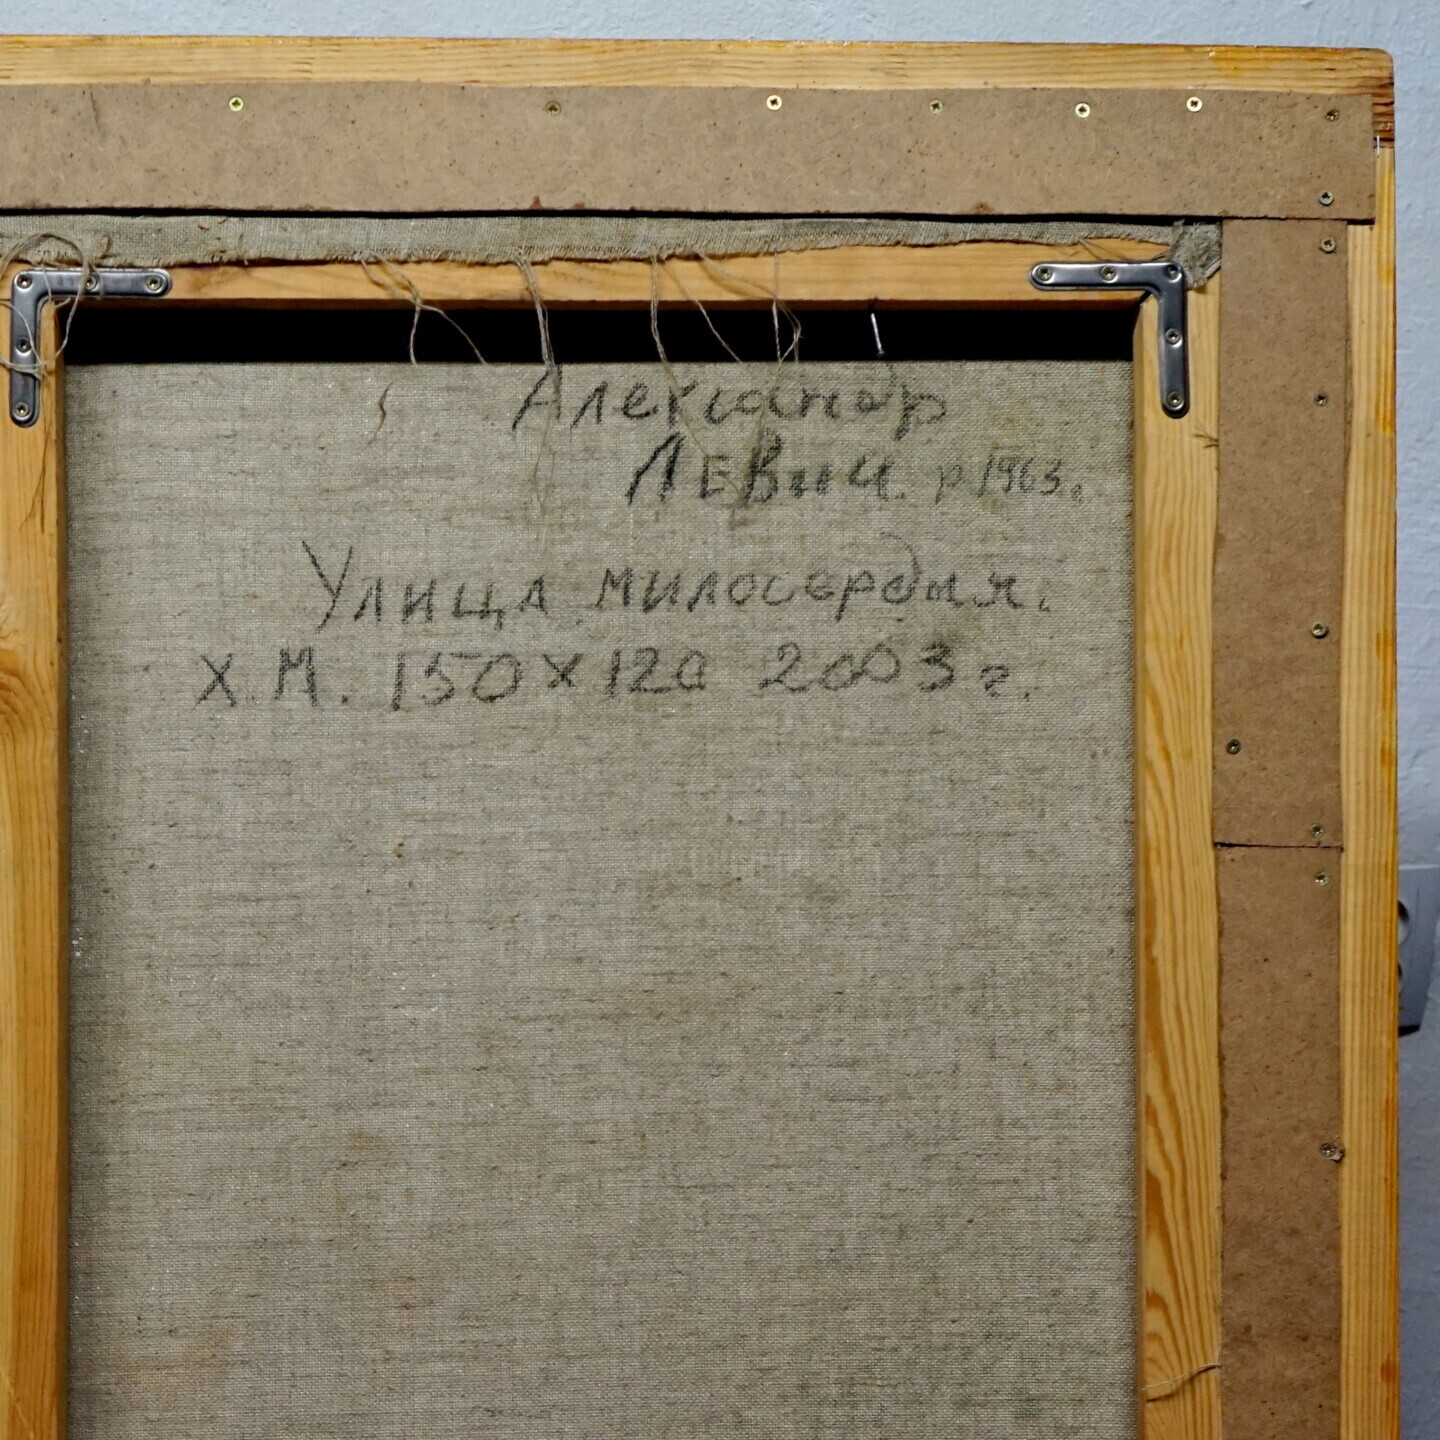 Александр
ЛЕВИЧ. р 1963.
Улица милосердия.
Х.М. 150х120 2003г.